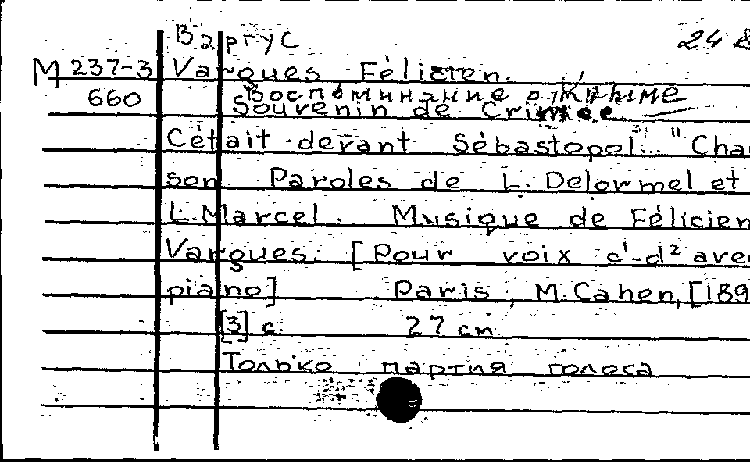 Варгус
M 237-3 Vargues Félicien.
660 Воспоминание о Крыме
Souvenir de Crimée
C'était devant Sébastopol." Cha
son Paroles de L. Delormel et
L. Marcel. Musique de Félicien
Vargues. [Pour voix c'-d² ave
piano] Paris, M. Cahen, [189
[3] с. 27 cm
Только партия голоса